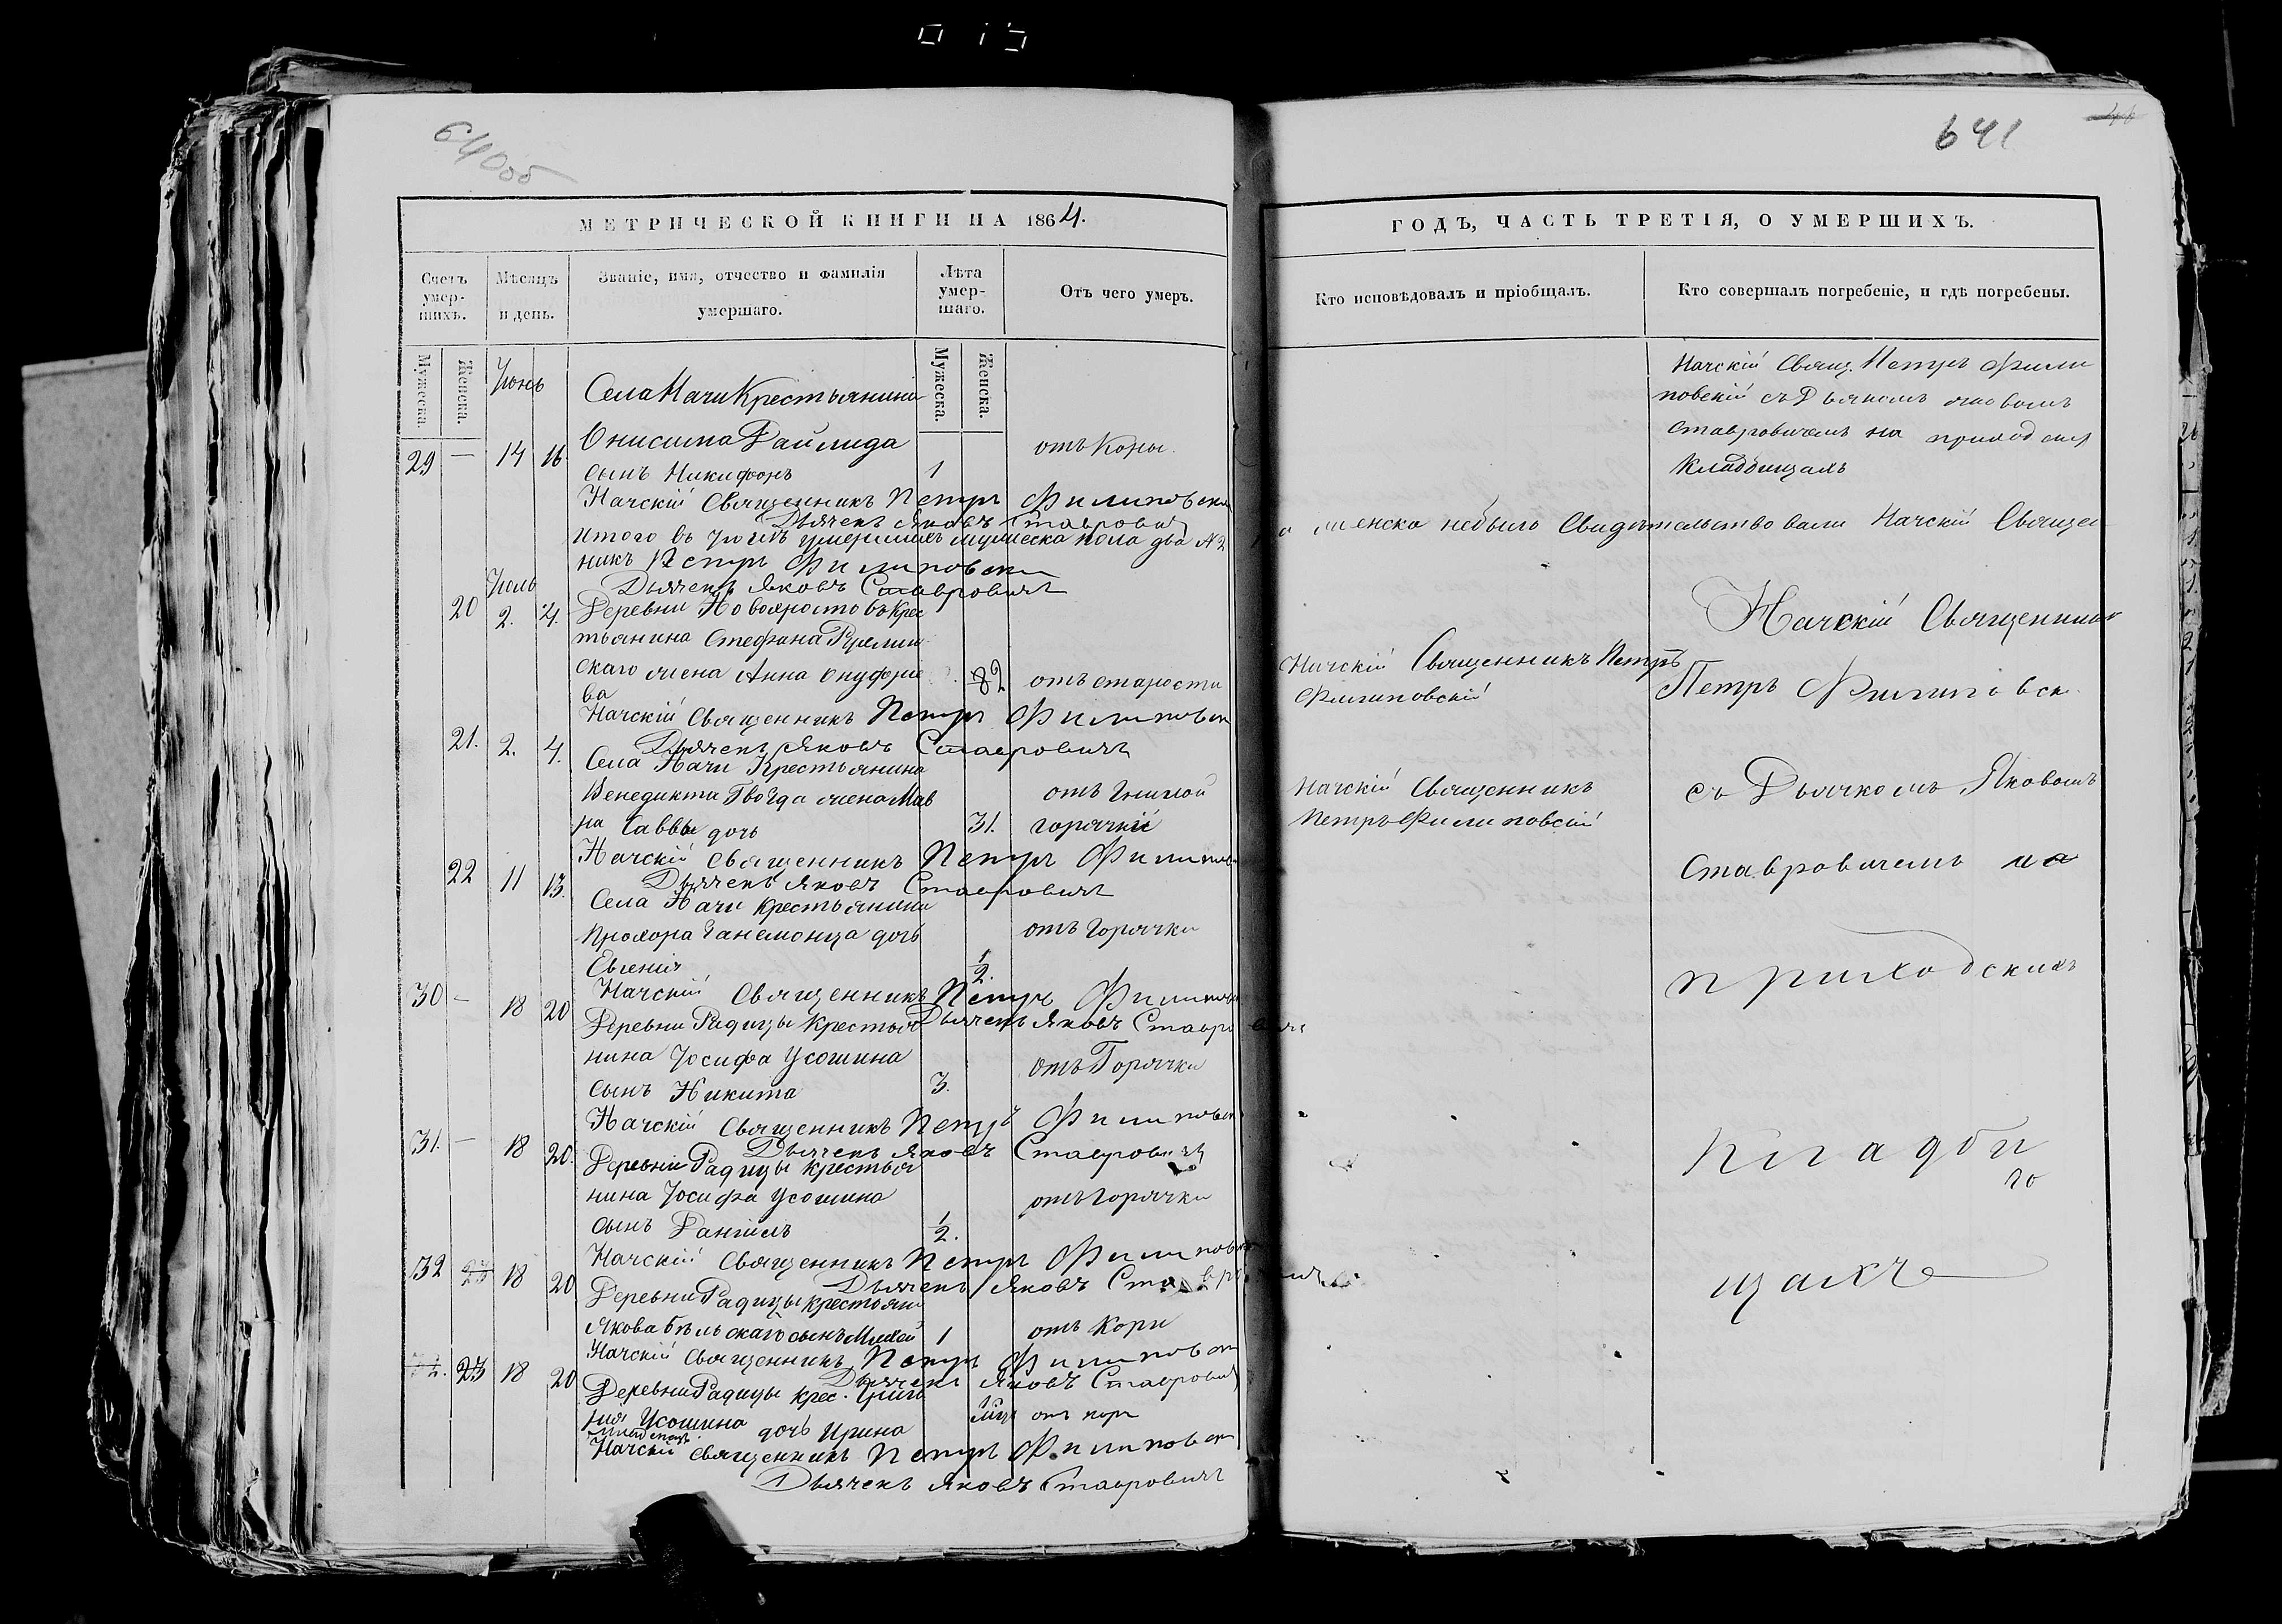 640об
641
МЕТРИЧЕСКОЙ КНИГИ НА 1864.
ГОДЪ, ЧАСТЬ ТРЕТІЯ, О УМЕРШИХЪ.
Счетъ умер-шихъ.
Мѣсяцъ и день.
Званіе, имя, отчество и фамилія умершаго.
Лѣта умер-шаго.
Отъ чего умеръ.
Кто исповѣдовалъ и пріобщалъ.
Кто совершалъ погребеніе, и гдѣ погребены.
Мужеска.
Женска.
Мужеска.
Женска.
Іюнь
Села Начи Крестьянина
29 — 14 16 Онисима Дайлида отъ Кори.
сынъ Никифоръ 1
Начскій Свящ. Петръ Фили
повскій съ Дьякомъ Яковомъ
Ставровичемъ на приходских
Кладбищахъ
Начскій Священникъ Петръ Филиповски
Дьячекъ Яковъ Ставровичъ
Итого въ Іюнѣ умершихъ мужеска пола два № 2
женска небыло Свидѣтельствовали Начскій Священ
никъ Петръ Филиповски
Дьячекъ Яковъ Ставровичъ
Іюль
20 2. 4. Деревни Новояростовъ Крес
тьянина Стефана
скаго жена Анна Онуфрие 82 отъ старости
ва
Начскій Священникъ Петръ
Филиповскій
Начскій Священникъ Петръ Филиповски
Дьячекъ Яковъ Ставровичъ
21. 2. 4. Села Начи Крестьянина
Венедикта Гвозда жена Мав отъ Гнилой
ра Саввы дочь 31. горячки
Начскій Священникъ
Петръ Филиповскій
Начскій Священникъ Петръ Филипов
Дьячекъ Яковъ Ставровичъ
22 11 13. Села Начи Крестьянина
Прохора дочь отъ Горячки
Евгенія 1/2.
Начскій Священникъ Петръ Филипов
Дьячекъ Яковъ Ставровичъ
30 — 18 20 Деревни Радицы Крестья
нина Іосифа Усошина отъ Горячки
сынъ Никита 3.
Начскій Священникъ Петръ Филиповск
Дьячекъ Яковъ Ставровичъ
31. — 18 20. Деревни Радицы Крестья
нина Іосифа Усошина отъ горячки
сынъ Даніилъ 1/2.
Начскій Священникъ Петръ Филиповск
Дьячекъ Яковъ Ставровичъ
32 23 18 20 Деревни Радицы Крестьяни
Якова Бѣльскаго сынъ Михаи 1 отъ Кори
Начскій Священникъ Петръ Филиповск
Дьячекъ Яковъ Ставровичъ
32. 23 18 20 Деревни Радицы Крес. Григо
рія Усошина дочь Ирина отъ кори
Начскій Священникъ Петръ Филиповск
Дьячекъ Яковъ Ставровичъ
Начскій Священникъ
Петръ Филиповск
съ Дьячкомъ Яковомъ
Ставровичемъ на
приходскихъ
Кладби
щахъ